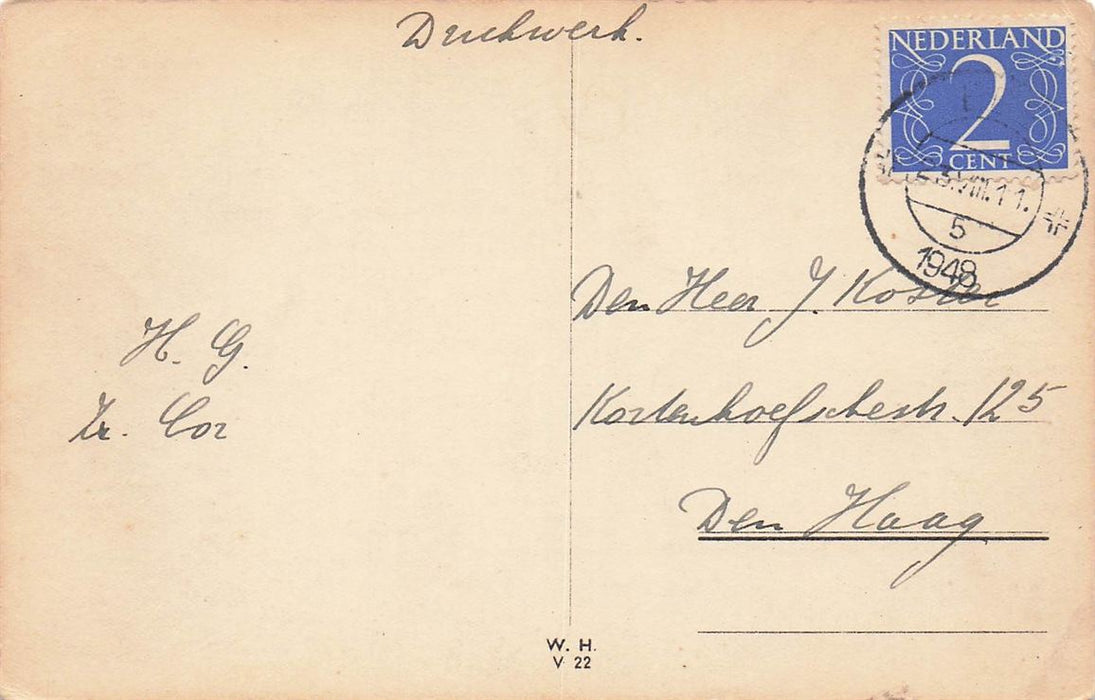 Drukwerk.
NEDERLAND
2
CENT
23.VIII.11.
5
1948
Den Heer J. Koster
125
Den Haag
H. G.
Zr. Cor
W. H.
V 22